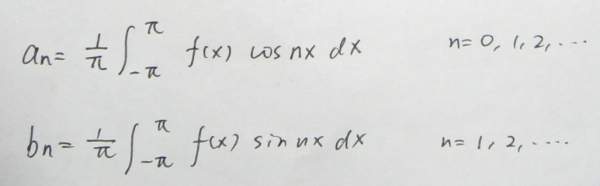 aₙ = 1/π ∫_{-π}^{π} f(x) cos nx dx n = 0, 1, 2, ...
bₙ = 1/π ∫_{-π}^{π} f(x) sin nx dx n = 1, 2, ....